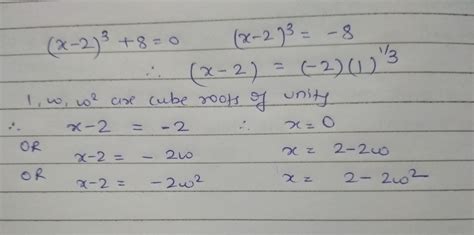 (x-2)³ + 8 = 0 (x-2)³ = -8
∴ (x-2) = (-2)(1)^1/3
1, ω, ω² are cube roots of unity
∴ x-2 = -2 ∴ x=0
OR x-2 = - 2ω x = 2-2ω
OR x-2 = -2ω² x = 2-2ω²